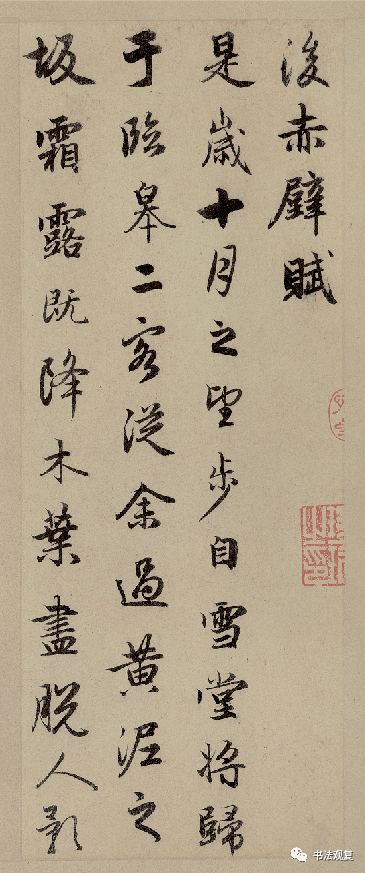 後赤壁賦
是歲十月之望步自雪堂將歸
于臨皋二客從余過黃泥之
坂霜露既降木葉盡脫人影
书法观复